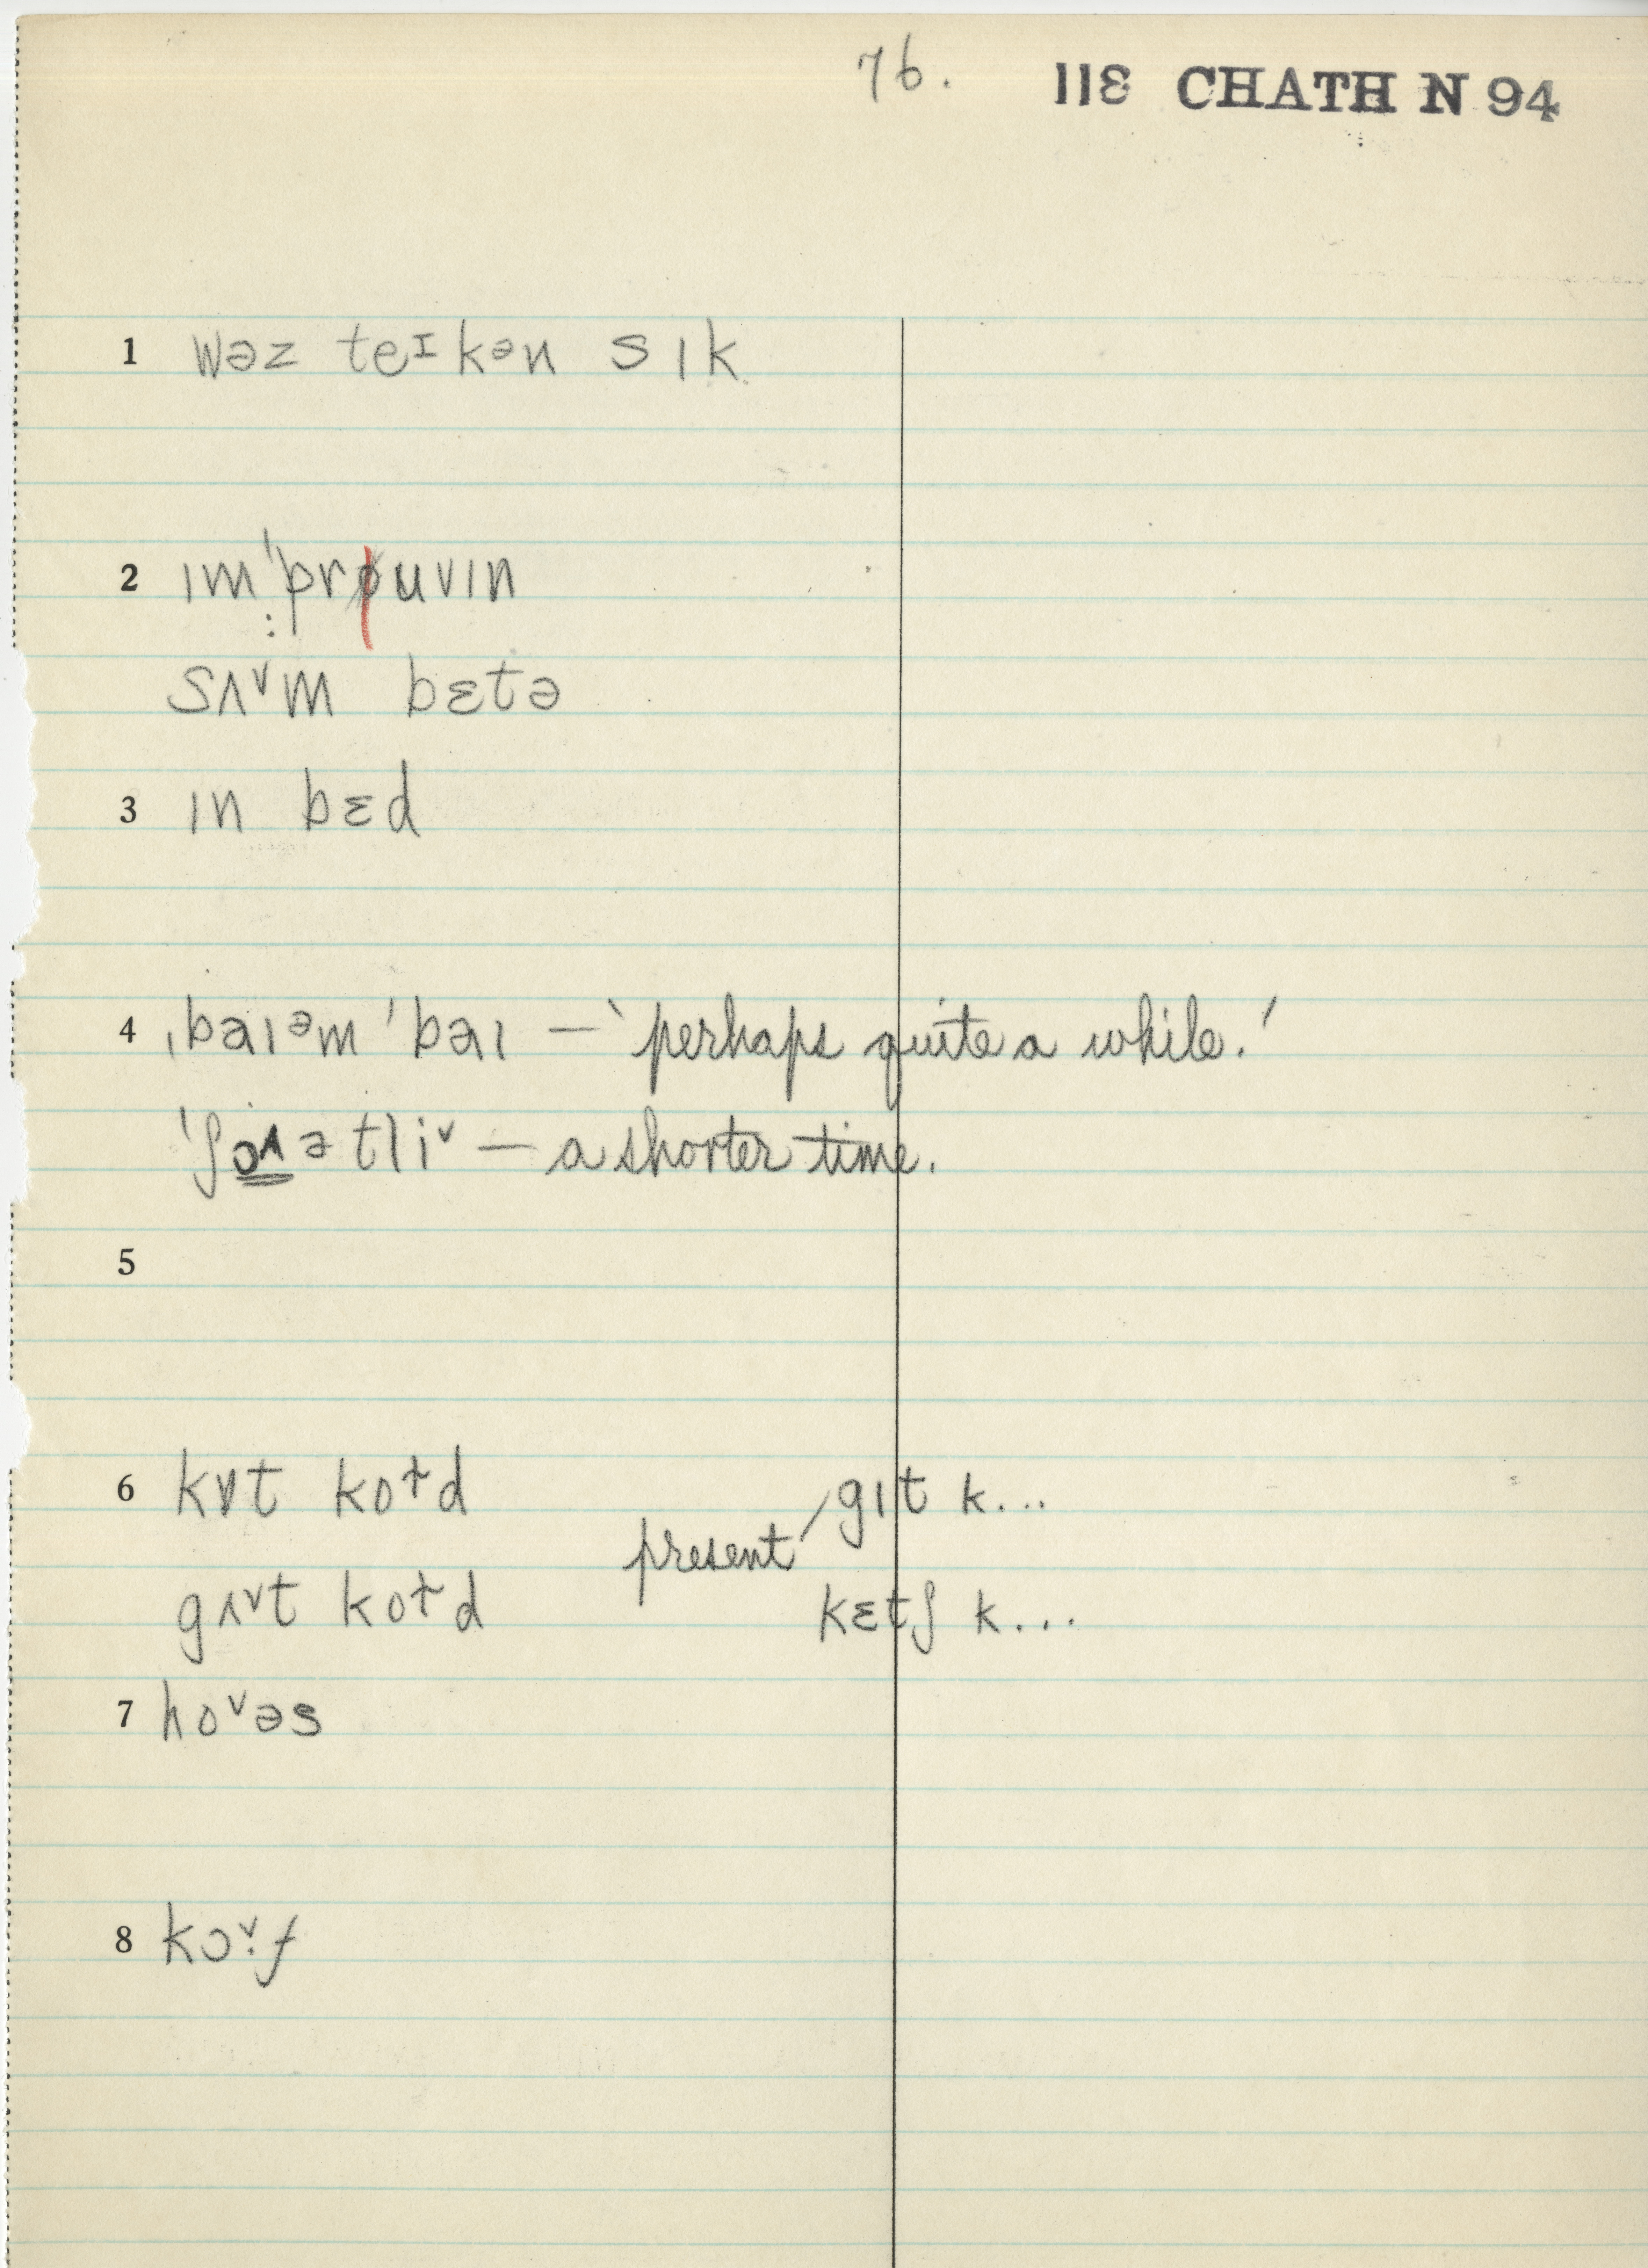 76. 118 CHATH N 94
1 wəz teᶦkᵊn sɪk
2 ɪmˈpruvɪn
sʌ˅m bɛtə
3 ɪn bɛd
4 ˌbaɪᵊm ˈbaɪ — ‘perhaps quite a while.’
ˈʃɔ˄ətli˅ — a shorter time.
5
6 kɒt ko˔d present gɪt k...
gʌ˅t ko˔d kɛtʃ k...
7 ho˅əs
8 kɔ˅·f